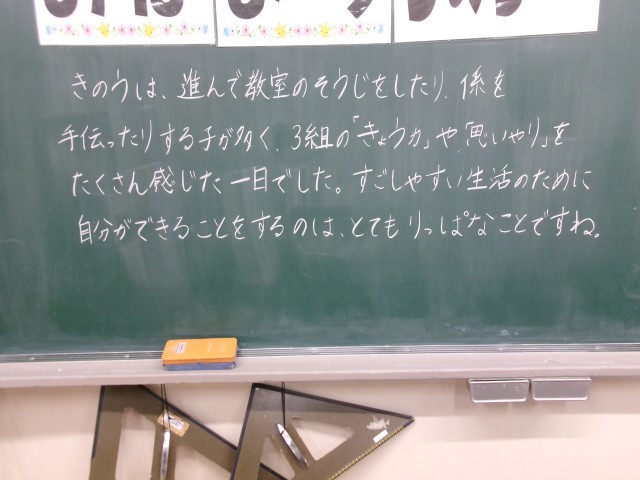 きのうは、進んで教室のそうじをしたり、係を
手伝ったりする子が多く、3組の「きょう力」や「思いやり」を
たくさん感じた一日でした。すごしやすい生活のために
自分ができることをするのは、とてもりっぱなことですね。